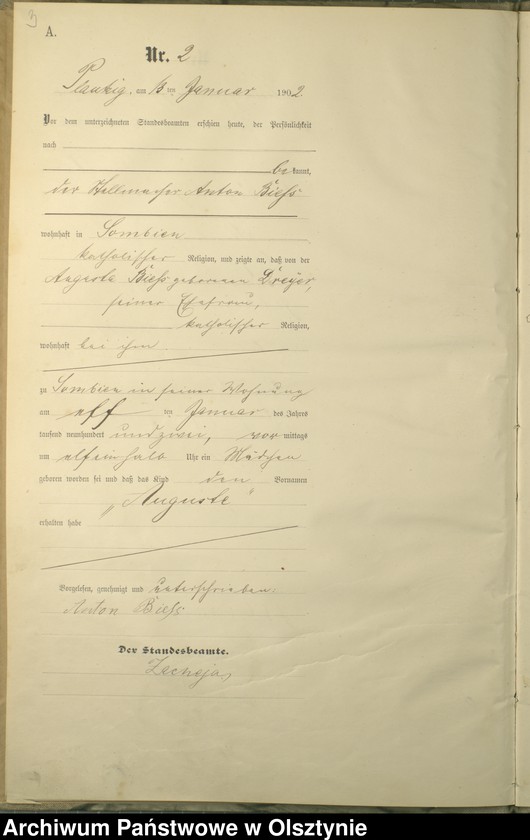 3
A.
Nr. 2
Plautzig, am 13ten Januar 1902
Vor dem unterzeichneten Standesbeamten erschien heute, der Persönlichkeit
nach
bekannt,
der Anton Biess
wohnhaft in Sombien
katholischer Religion, und zeigte an, daß von der
Auguste Biess geborenen Dreyer,
seiner Ehefrau,
katholischer Religion,
wohnhaft bei ihm
zu Sombien in seiner Wohnung
am elf ten Januar des Jahres
tausend neunhundert und zwei, vor mittags
um elfeinhalb Uhr ein Mädchen
geboren worden sei und daß das Kind den Vornamen
„Auguste"
erhalten habe
Vorgelesen, genehmigt und unterschrieben.
Anton Biess
Der Standesbeamte.
Archiwum Państwowe w Olsztynie